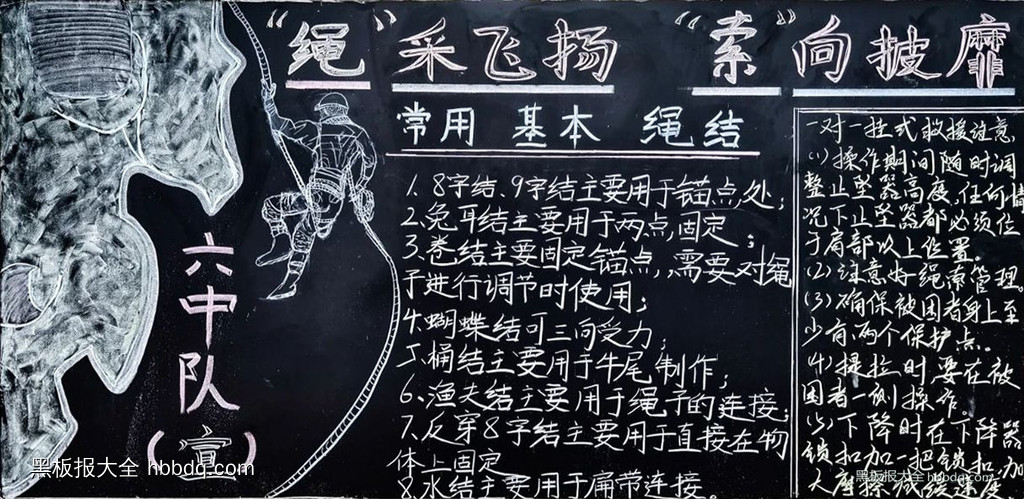 “绳”采飞扬 “索”向披靡
常用 基本 绳结
1. 8字结、9字结主要用于锚点处;
2、兔耳结主要用于两点固定;
3、卷结主要固定锚点,需要对绳
子进行调节时使用;
4.蝴蝶结可三向受力;
5、桶结主要用于牛尾制作;
6、渔夫结主要用于绳子的连接;
7、反穿8字结主要用于直接在物
体上固定
8、水结主要用于扁带连接。
一对一挂式救援注意
(1)操作期间随时调
整止坠器高度,任何情
况下止坠器都必须位
于肩部以上位置。
(2)注意好绳索管理。
(3)确保被困者身上至
少有两个保护点。
(4)提拉时要在被
困者一侧操作。
(5)下降时在下降器
锁扣加一把锁扣,加
大摩擦减缓速度
六中队
(宣)
黑板报大全 hbbdq.com
黑板报大全 hbbdq.com